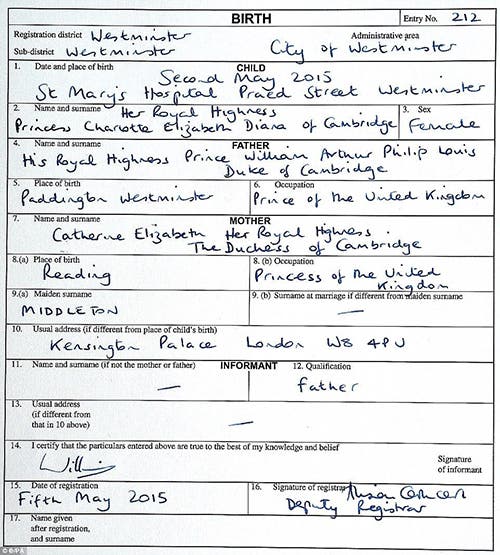 BIRTH
Entry No. 212
Registration district Westminster
Administrative area
Sub-district Westminster
City of Westminster
1. Date and place of birth
CHILD
Second May 2015
St Mary's Hospital Praed Street Westminster
2. Name and surname Her Royal Highness
Princess Charlotte Elizabeth Diana of Cambridge
3. Sex
Female
4. Name and surname
FATHER
His Royal Highness Prince William Arthur Philip Louis
Duke of Cambridge
5. Place of birth
Paddington Westminster
6. Occupation
Prince of the United Kingdom
7. Name and surname
MOTHER
Catherine Elizabeth Her Royal Highness
The Duchess of Cambridge
8.(a) Place of birth
Reading
8. (b) Occupation
Princess of the United
Kingdom
9.(a) Maiden surname
MIDDLETON
9. (b) Surname at marriage if different from maiden surname
—
10. Usual address (if different from place of child's birth)
Kensington Palace London W8 4PU
11. Name and surname (if not the mother or father)
INFORMANT
—
12. Qualification
Father
13. Usual address
(if different from
that in 10 above)
—
14. I certify that the particulars entered above are true to the best of my knowledge and belief
Signature
of informant
15. Date of registration
Fifth May 2015
16. Signature of registrar
Deputy Registrar
17. Name given
after registration,
and surname